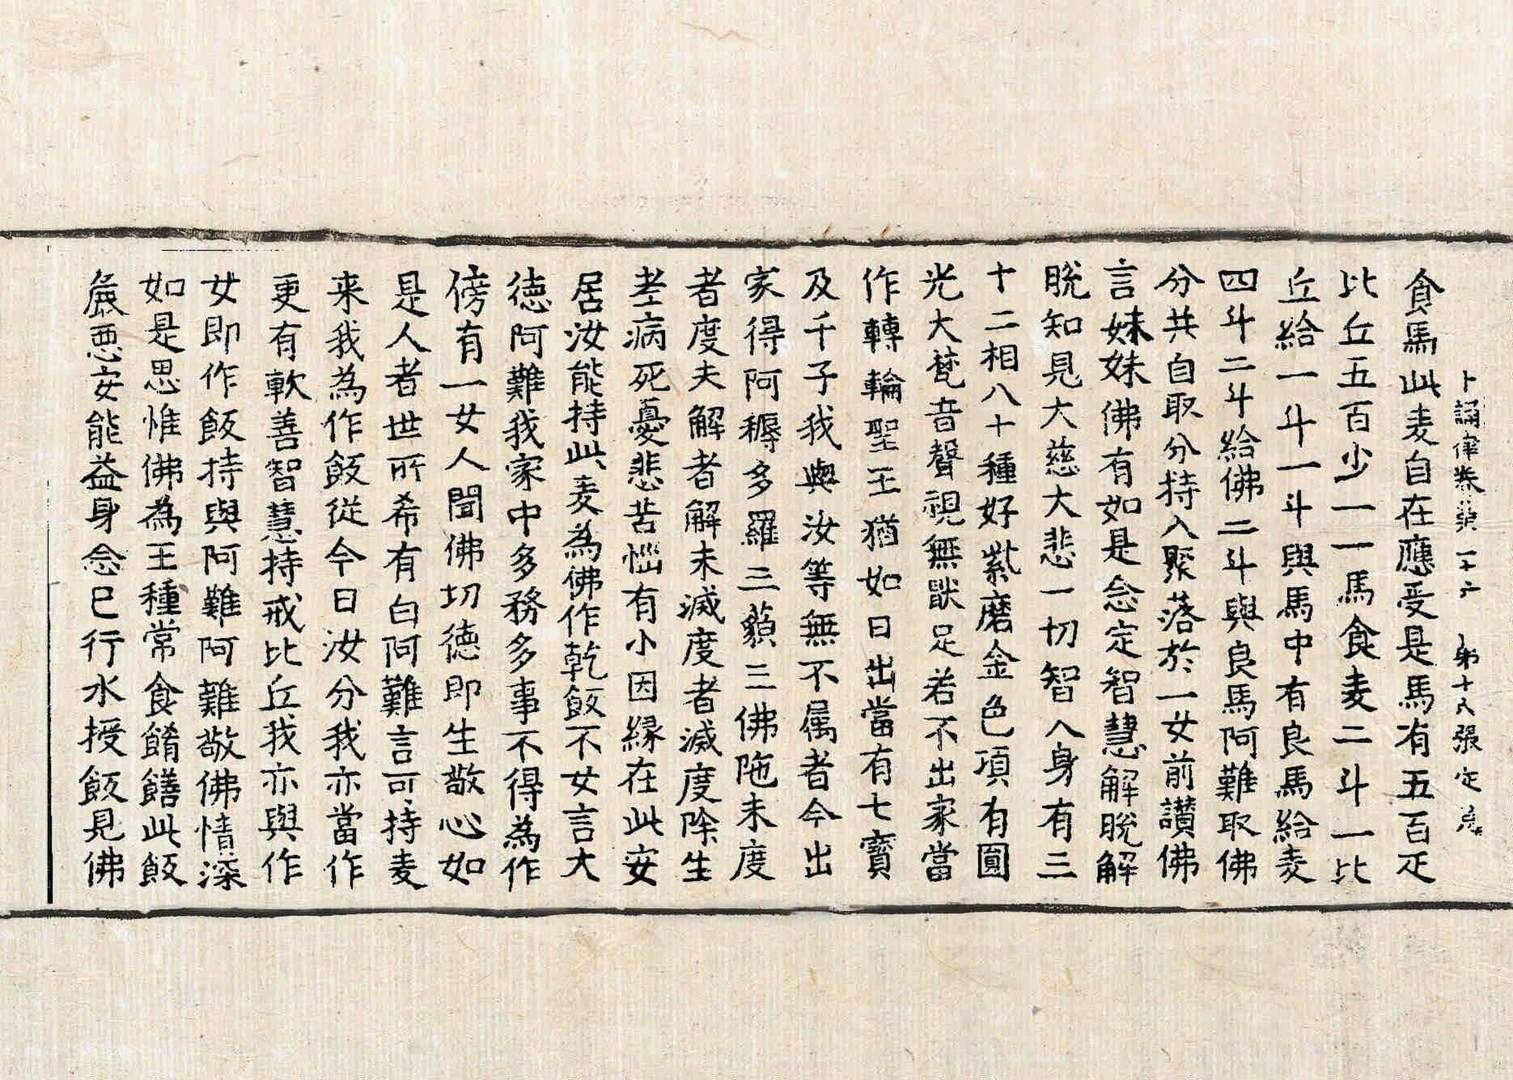 十誦律卷第二十六 第十八張 定
食馬此麦自在應受是馬有五百疋
比丘五百少一一馬食麦二斗一比
丘給一斗一斗與馬中有良馬給麦
四斗二斗給佛二斗與良馬阿難取佛
分共自取分持入聚落於一女前讃佛
言妹妹佛有如是念定智慧解脫解
脫知見大慈大悲一切智人身有三
十二相八十種好紫磨金色項有圓
光大梵音聲視無猒足若不出家當
作轉輪聖王猶如日出當有七寶
及千子我與汝等無不属者今出
家得阿耨多羅三藐三佛陁未度
者度夫解者解未滅度者滅度除生
老病死憂悲苦惱有小因緣在此安
居汝能持此麦為佛作乾飯不女言大
德阿難我家中多務多事不得為作
傍有一女人聞佛切德即生敬心如
是人者世所希有白阿難言可持麦
来我為作飯從今日汝分我亦當作
更有軟善智慧持戒比丘我亦與作
女即作飯持與阿難阿難敬佛情深
如是思惟佛為王種常食餚饍此飯
麁悪安能益身念已行水授飯見佛